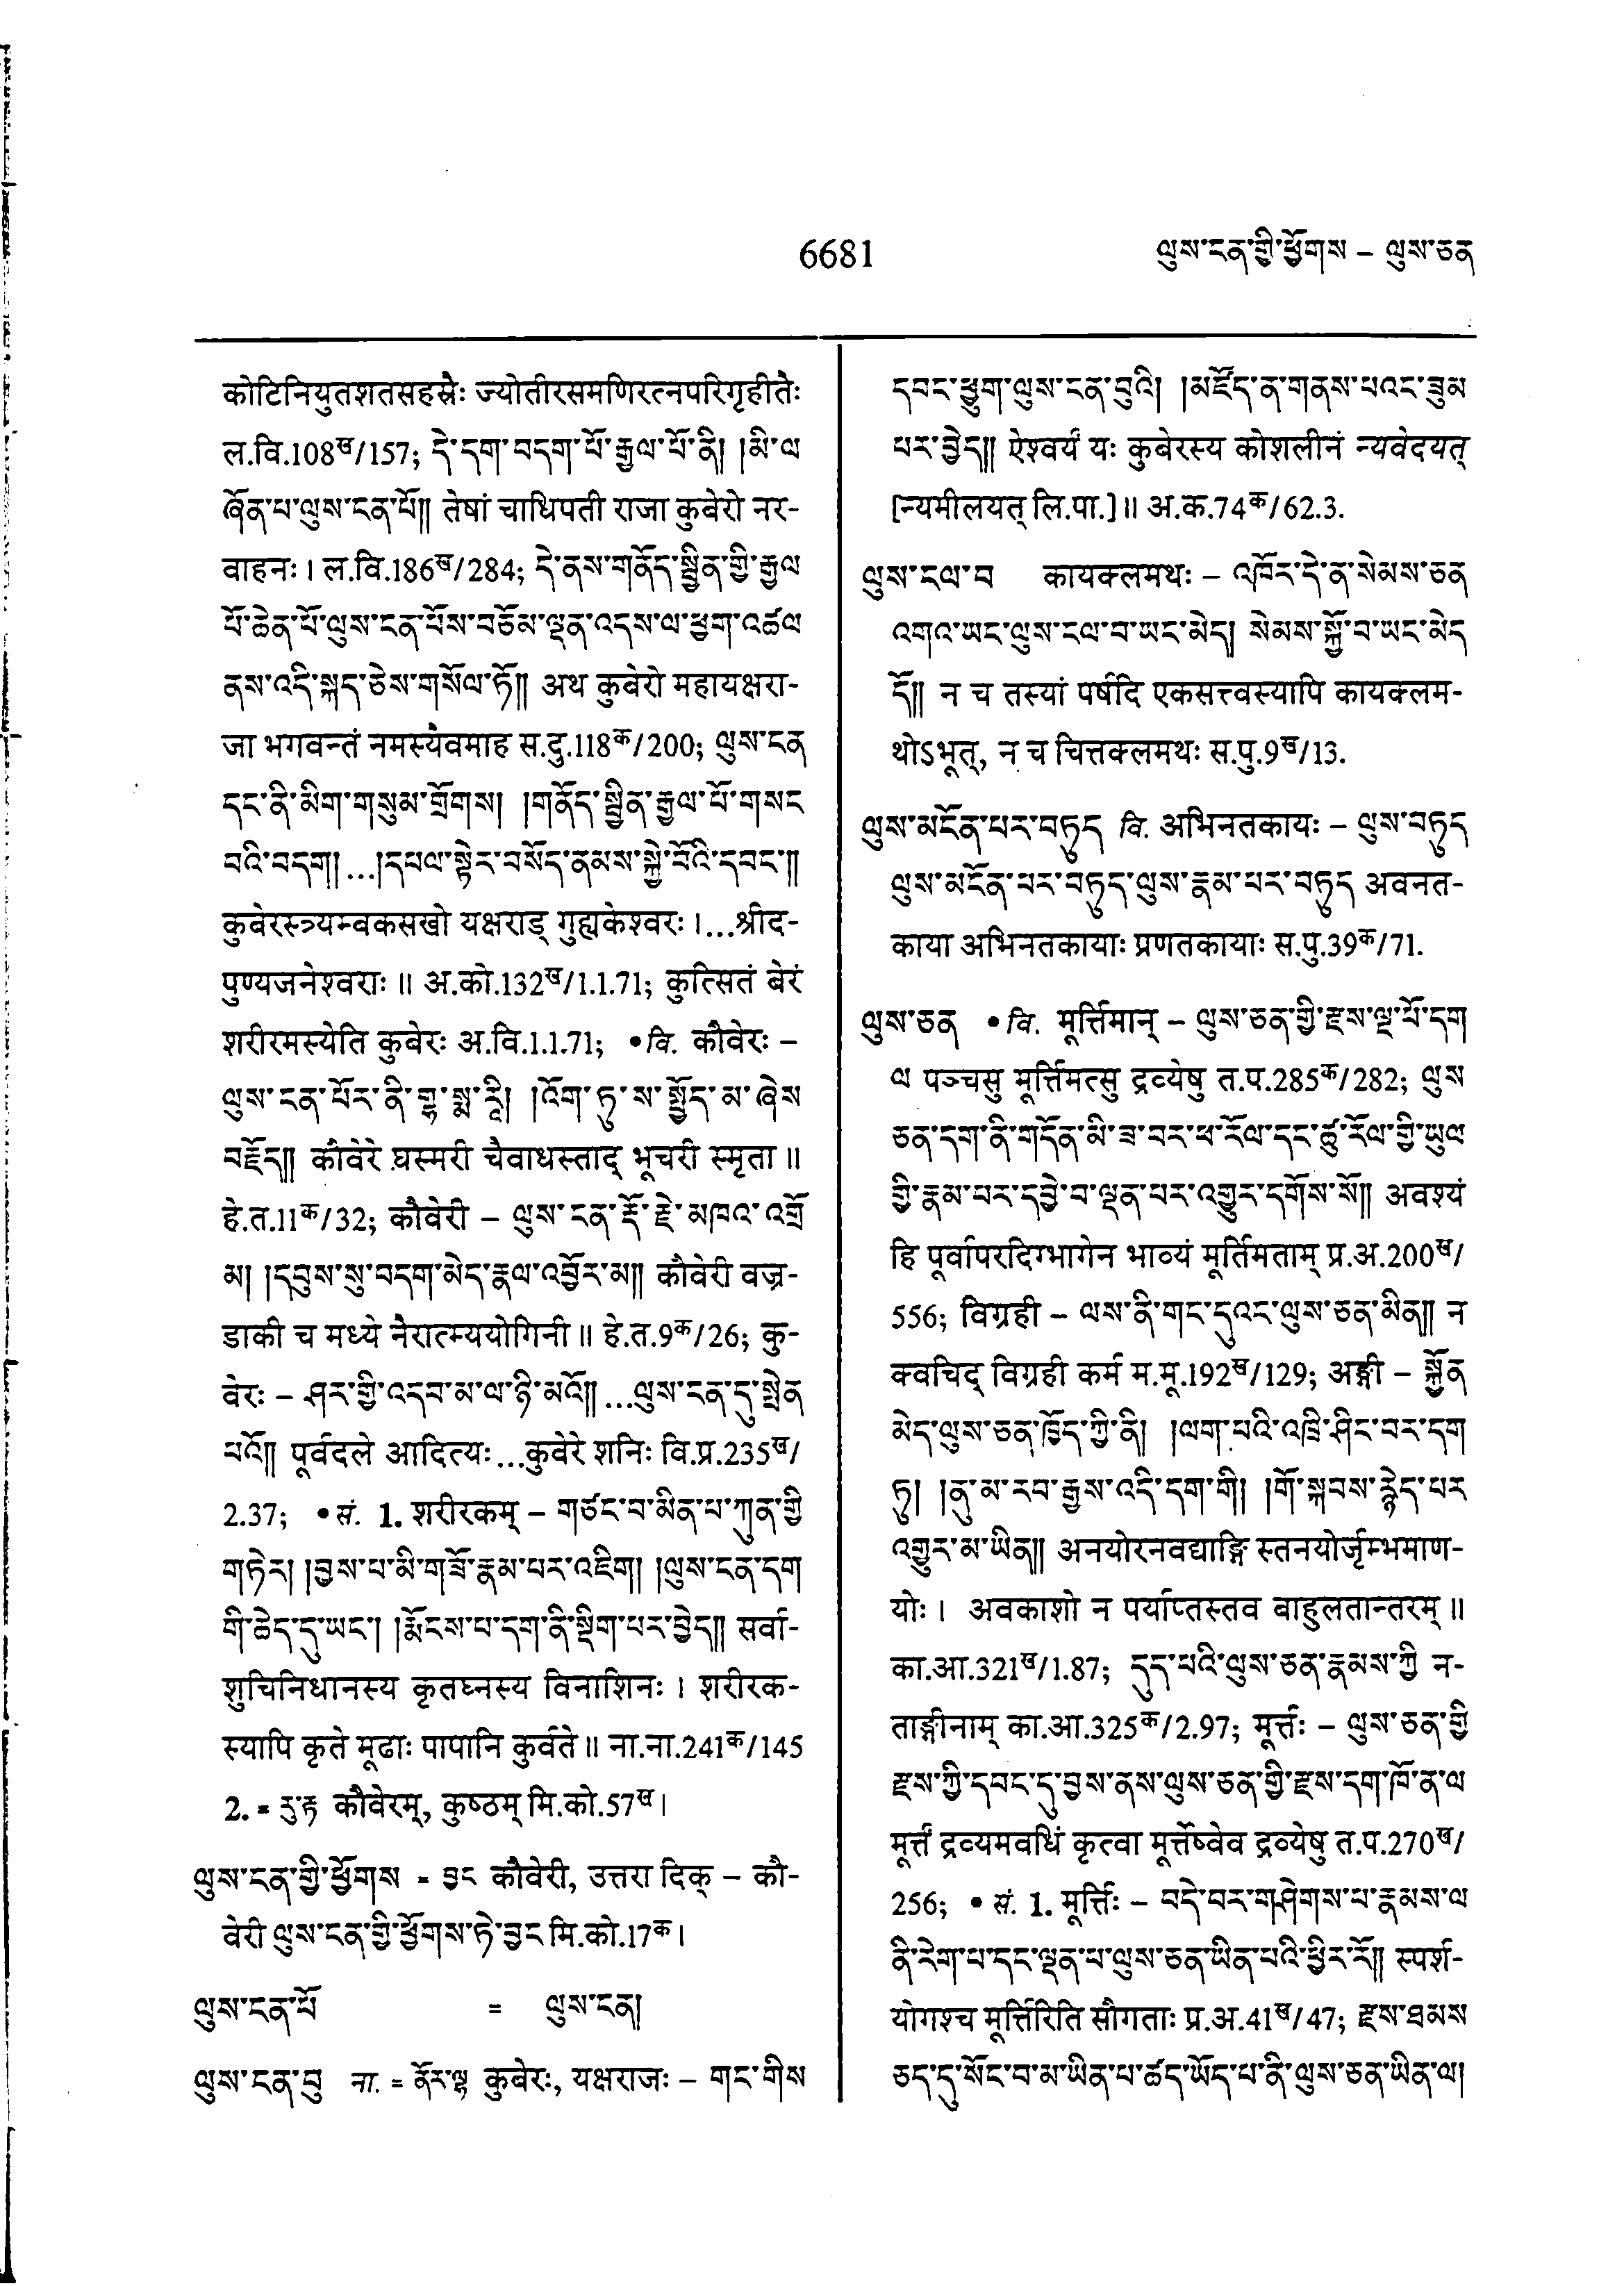 6681
ལུས་ངན་གྱི་ཕྱོགས – ལུས་ཅན
कोटिनियुतशतसहस्रैः ज्योतीरसमणिरत्नपरिगृहीतैः
ल.वि.108ख/157; དེ་དག་བདག་པོ་རྒྱལ་པོ་ནི། །མི་ལ
ཞོན་པ་ལུས་ངན་པོ།། तेषां चाधिपती राजा कुबेरो नर-
वाहनः । ल.वि.186ख/284; དེ་ནས་གནོད་སྦྱིན་གྱི་རྒྱལ
པོ་ཆེན་པོ་ལུས་ངན་པོས་བཅོམ་ལྡན་འདས་ལ་ཕྱག་འཚལ
ནས་འདི་སྐད་ཅེས་གསོལ་ཏོ།། अथ कुबेरो महायक्षरा-
जा भगवन्तं नमस्यैवमाह स.दु.118क/200; ལུས་ངན
དང་ནི་མིག་གསུམ་གྲོགས། །གནོད་སྦྱིན་རྒྱལ་པོ་གསང
བའི་བདག།...།དཔལ་སྟེར་བསོད་ནམས་སྐྱེ་བོའི་དབང་།།
कुबेरस्त्र्यम्बकसखो यक्षराड् गुह्यकेश्वरः ।...श्रीद-
पुण्यजनेश्वराः ॥ अ.को.132ख/1.1.71; कुत्सितं बेरं
शरीरमस्येति कुबेरः अ.वि.1.1.71; •वि. कौवेरः –
ལུས་ངན་པོར་ནི་གྷ་སྨ་རཱི། །འོག་ཏུ་ས་སྤྱོད་མ་ཞེས
བརྗོད།། कौवेरे घस्मरी चैवाधस्ताद् भूचरी स्मृता ॥
हे.त.11क/32; कौवेरी – ལུས་ངན་རྡོ་རྗེ་མཁའ་འགྲོ
མ། །དབུས་སུ་བདག་མེད་རྣལ་འབྱོར་མ།། कौवेरी वज्र-
डाकी च मध्ये नैरात्म्ययोगिनी ॥ हे.त.9क/26; कु-
वेरः – ཤར་གྱི་འདབ་མ་ལ་ཉི་མའོ།།...ལུས་ངན་དུ་སྤེན
པའོ།། पूर्वदले आदित्यः...कुवेरे शनिः वि.प्र.235ख/
2.37; •सं. 1. शरीरकम् – གཙང་བ་མིན་པ་ཀུན་གྱི
གཏེར། །བྱས་པ་མི་གཟོ་རྣམ་པར་འཇིག། །ལུས་ངན་དག
གི་ཆེད་དུ་ཡང་། །རྨོངས་པ་དག་ནི་སྡིག་པར་བྱེད།། सर्वा-
शुचिनिधानस्य कृतघ्नस्य विनाशिनः । शरीरक-
स्यापि कृते मूढाः पापानि कुर्वते ॥ ना.ना.241क/145
2. = རུ་རྟ कौवेरम्, कुष्ठम् मि.को.57ख।
ལུས་ངན་གྱི་ཕྱོགས = བྱང कौवेरी, उत्तरा दिक् – कौ-
वेरी ལུས་ངན་གྱི་ཕྱོགས་ཏེ་བྱང मि.को.17क।
ལུས་ངན་པོ = ལུས་ངན།
ལུས་ངན་བུ ना. = ནོར་ལྷ कुबेरः, यक्षराजः – གང་གིས
དབང་ཕྱུག་ལུས་ངན་བུའི། །མཛོད་ན་གནས་པའང་ཟུམ
པར་བྱེད།། ऐश्वर्यं यः कुबेरस्य कोशलीनं न्यवेदयत्
[न्यमीलयत् लि.पा.]॥ अ.क.74क/62.3.
ལུས་ངལ་བ कायक्लमथः – འཁོར་དེ་ན་སེམས་ཅན
འགའ་ཡང་ལུས་ངལ་བ་ཡང་མེད། སེམས་སྐྱོ་བ་ཡང་མེད
དོ།། न च तस्यां पर्षदि एकसत्त्वस्यापि कायक्लम-
थोऽभूत्, न च चित्तक्लमथः स.पु.9ख/13.
ལུས་མངོན་པར་བཏུད वि. अभिनतकायः – ལུས་བཏུད
ལུས་མངོན་པར་བཏུད་ལུས་རྣམ་པར་བཏུད अवनत-
काया अभिनतकायाः प्रणतकायाः स.पु.39क/71.
ལུས་ཅན •वि. मूर्त्तिमान् – ལུས་ཅན་གྱི་རྫས་ལྔ་པོ་དག
ལ पञ्चसु मूर्त्तिमत्सु द्रव्येषु त.प.285क/282; ལུས
ཅན་དག་ནི་གདོན་མི་ཟ་བར་ཕ་རོལ་དང་ཚུ་རོལ་གྱི་ཡུལ
གྱི་རྣམ་པར་དབྱེ་བ་ལྡན་པར་འགྱུར་དགོས་སོ།། अवश्यं
हि पूर्वापरदिग्भागेन भाव्यं मूर्तिमताम् प्र.अ.200ख/
556; विग्रही – ལས་ནི་གང་དུའང་ལུས་ཅན་མིན།། न
क्वचिद् विग्रही कर्म म.मू.192ख/129; अङ्गी – སྐྱོན
མེད་ལུས་ཅན་ཁྱོད་ཀྱི་ནི། །ལག་པའི་འཁྲི་ཤིང་བར་དག
ཏུ། །ནུ་མ་རབ་རྒྱས་འདི་དག་གི། །གོ་སྐབས་རྙེད་པར
འགྱུར་མ་ཡིན།། अनयोरनवद्याङ्गि स्तनयोर्जृम्भमाण-
योः । अवकाशो न पर्याप्तस्तव बाहुलतान्तरम् ॥
का.आ.321ख/1.87; དུད་པའི་ལུས་ཅན་རྣམས་ཀྱི न-
ताङ्गीनाम् का.आ.325क/2.97; मूर्त्तः – ལུས་ཅན་གྱི
རྫས་ཀྱི་དབང་དུ་བྱས་ནས་ལུས་ཅན་གྱི་རྫས་དག་ཁོ་ན་ལ
मूर्त्तं द्रव्यमवधिं कृत्वा मूर्त्तेष्वेव द्रव्येषु त.प.270ख/
256; • सं. 1. मूर्त्तिः – བདེ་བར་གཤེགས་པ་རྣམས་ལ
ནི་རེག་པ་དང་ལྡན་པ་ལུས་ཅན་ཡིན་པའི་ཕྱིར་རོ།། स्पर्श-
योगश्च मूर्त्तिरिति सौगताः प्र.अ.41ख/47; རྫས་ཐམས
ཅད་དུ་སོང་བ་མ་ཡིན་པ་ཚད་ཡོད་པ་ནི་ལུས་ཅན་ཡིན་ལ།